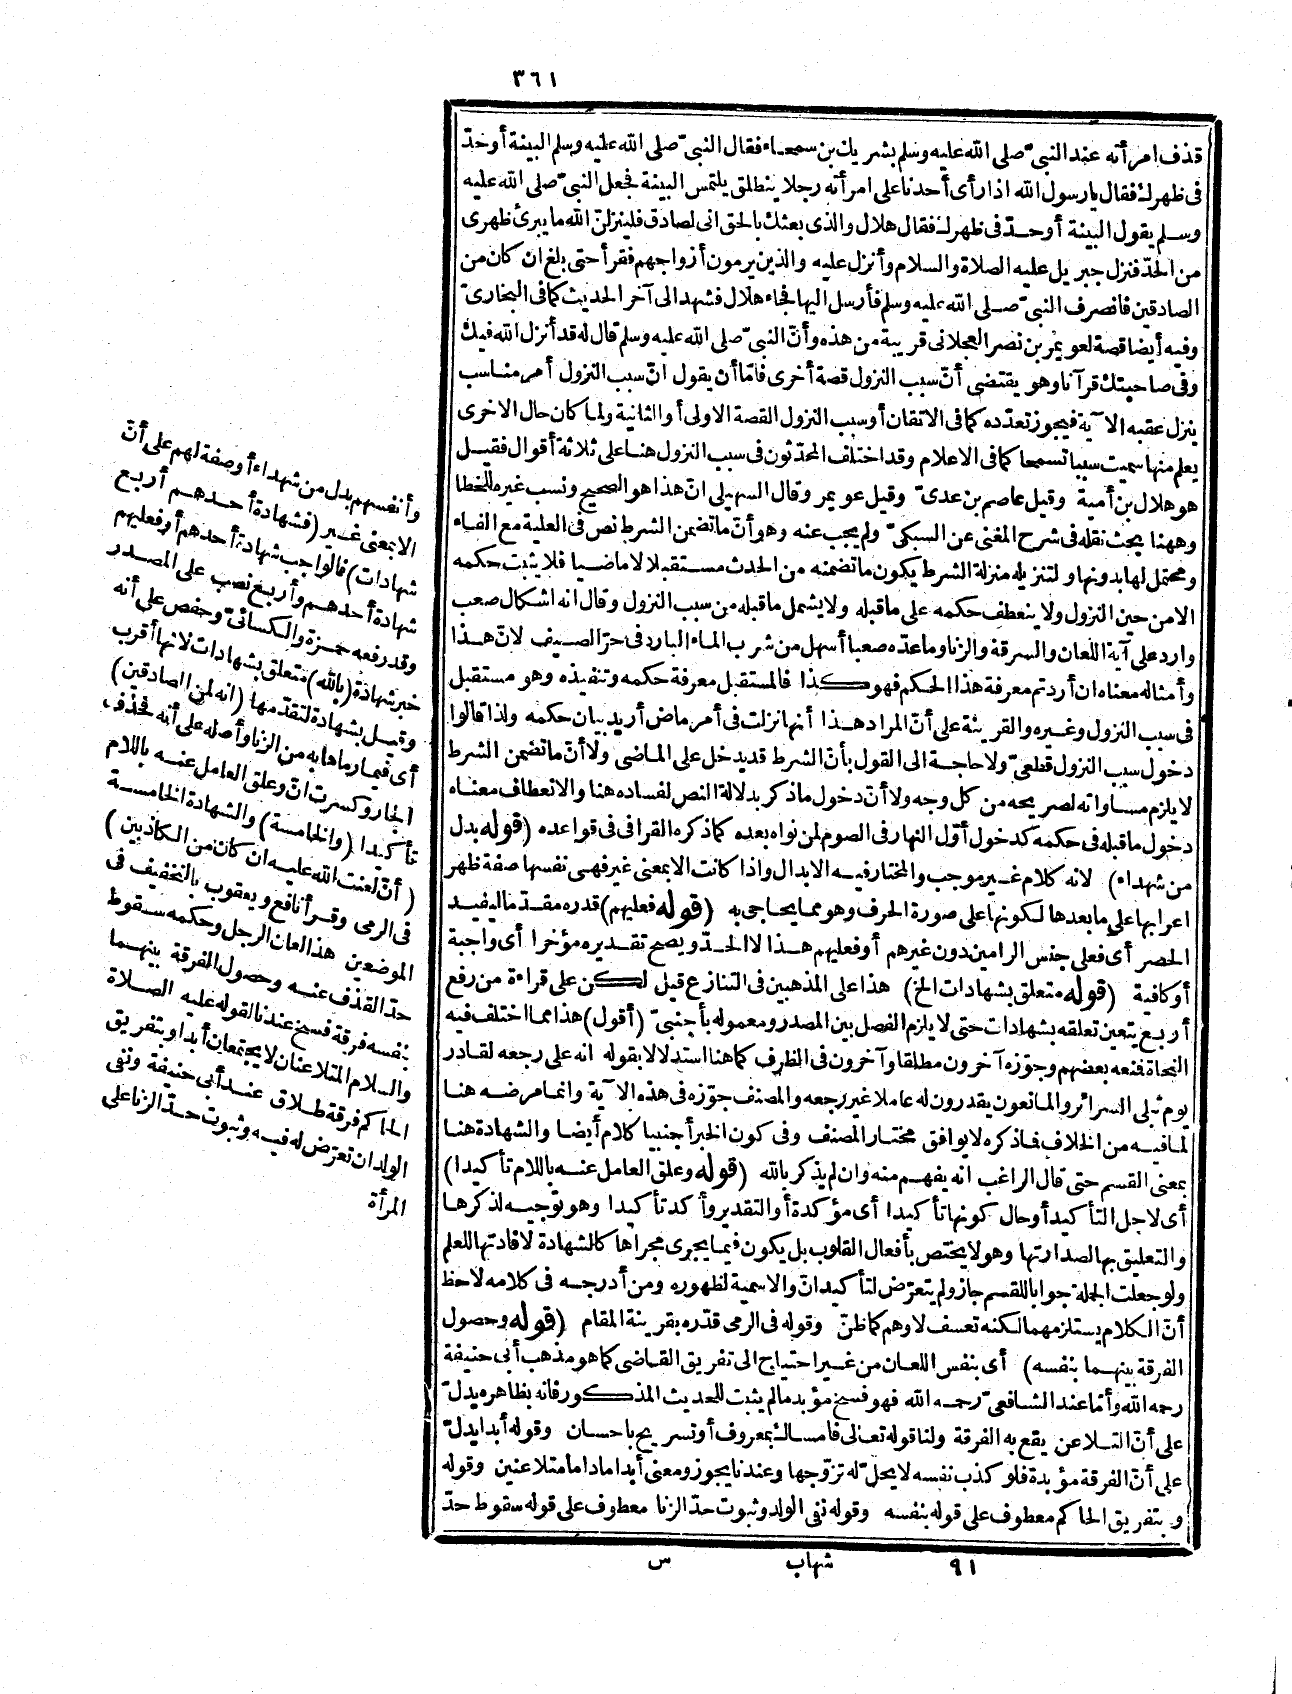 ٣٦١
قذف امرأته عند النبيّ صلى الله عليه وسلم بشريك بن سمعاء فقال النبيّ صلى الله عليه وسلم البينة أو حدّ
فى ظهرك فقال يا رسول الله اذا رأى أحدنا على امرأته رجلا ينطلق يلتمس البينة فجعل النبيّ صلى الله عليه
وسلم يقول البينة أو حدّ فى ظهرك فقال هلال والذى بعثك بالحق انى لصادق فلينزلنّ الله ما يبرئ ظهرى
من الحدّ فنزل جبريل عليه الصلاة والسلام وأنزل عليه والذين يرمون أزواجهم فقرأ حتى بلغ ان كان من
الصادقين فانصرف النبيّ صلى الله عليه وسلم فأرسل اليها فجاء هلال فشهد الى آخر الحديث كما فى البخارىّ
وفيه أيضا قصة لعويمر بن نصر العجلانى قريبة من هذه وأنّ النبيّ صلى الله عليه وسلم قال له قد أنزل الله فيك
وفى صاحبتك قرآنا وهو يقتضى أنّ سبب النزول قصة أخرى فامّا أن يقول انّ سبب النزول أمر مناسب
ينزل عقبه الآية فيجوز تعدّده كما فى الاتقان أو سبب النزول القصة الاولى أو الثانية ولما كان حال الاخرى
يعلم منها سميت سببا تسمحا كما فى الاعلام وقد اختلف المحدّثون فى سبب النزول هنا على ثلاثة أقوال فقيل
هو هلال بن أمية وقيل عاصم بن عدىّ وقيل عويمر وقال السهيلى انّ هذا هو الصحيح ونسب غيره للخطا
وههنا بحث نقله فى شرح المغنى عن السبكىّ ولم يجب عنه وهو أنّ ما تضمن الشرط نص فى العلية مع الفاء
ومحتمل لها بدونها ولتنزيله منزلة الشرط يكون ما تضمنه من الحدث مستقبلا لا ماضيا فلا يثبت حكمه
الامن حين النزول ولا ينعطف حكمه على ما قبله ولا يشمل ما قبله من سبب النزول وقال انه اشكال صعب
وارد على آية اللعان والسرقة والزنا وما عدّه صعبا أسهل من شرب الماء البارد فى حرّ الصيف لانّ هذا
وأمثاله معناه ان أردتم معرفة هذا الحكم فهو كذا فالمستقبل معرفة حكمه وتنفيذه وهو مستقبل
فى سبب النزول وغيره والقرينة على أنّ المراد هذا أنها نزلت فى أمر ماض أريد بيان حكمه ولذا قالوا
دخول سبب النزول قطعىّ ولا حاجة الى القول بأنّ الشرط قد يدخل على الماضى ولا أنّ ما تضمن الشرط
لا يلزم مساواته لصريحه من كل وجه ولا أنّ دخول ما ذكر بدلالة النص لفساده هنا والانعطاف معناه
دخول ما قبله فى حكمه كدخول أوّل النهار فى الصوم لمن نواه بعده كما ذكره القرافى فى قواعده (قوله بدل
من شهداء) لانه كلام غير موجب والمختار فيه الابدال واذا كانت الا بمعنى غير فهى نفسها صفة ظهر
اعرابها على ما بعدها لكونها على صورة الحرف وهو مما يحاجى به (قوله فعليهم) قدره مقدّما ليفيد
الحصر أى فعلى جنس الرامين دون غيرهم أو فعليهم هذا لا الحدّ ويصح تقديره مؤخرا أى واجبة
أو كافية (قوله متعلق بشهادات الخ) هذا على المذهبين فى التنازع قيل لكن على قراءة من رفع
أربع يتعين تعلقه بشهادات حتى لا يلزم الفصل بين المصدر ومعموله بأجنبىّ (أقول) هذا مما اختلف فيه
النحاة فمنعه بعضهم وجوّزه آخرون مطلقا وآخرون فى الظرف كما هنا استدلالا بقوله انه على رجعه لقادر
يوم تبلى السرائر والمانعون يقدرون له عاملا غير رجعه والمصنف جوّزه فى هذه الآية وانما مرضه هنا
لما فيه من الخلاف فما ذكره لا يوافق مختار المصنف وفى كون الخبر أجنبيا كلام أيضا والشهادة هنا
بمعنى القسم حتى قال الراغب انه يفهم منه وان لم يذكر بالله (قوله وعلق العامل عنه باللام تأكيدا)
أى لاجل التأكيد أو حال كونها تأكيدا أى مؤكدة أو التقدير وأكد تأكيدا وهو توجيه لذكرها
والتعليق بها لصدارتها وهو لا يختص بأفعال القلوب بل يكون فيما يجرى مجراها كالشهادة لافادتها للعلم
ولو جعلت الجملة جوابا للقسم جاز ولم يتعرّض لتأكيد انّ والاسمية لظهوره ومن أدرجه فى كلامه لاحظ
أنّ الكلام يستلزمهما لكنه تعسف لا وهم كما ظنّ وقوله فى الرمى قدّره بقرينة المقام (قوله وحصول
الفرقة بينهما بنفسه) أى بنفس اللعان من غير احتياج الى تفريق القاضى كما هو مذهب أبى حنيفة
رحمه الله وأمّا عند الشافعىّ رحمه الله فهو فسخ مؤبد ما لم يثبت للحديث المذكور فانه بظاهره يدلّ
على أنّ التلاعن يقع به الفرقة ولنا قوله تعالى فامساك بمعروف أو تسريح باحسان وقوله أبدا يدلّ
على أنّ الفرقة مؤبدة فلو كذب نفسه لا يحلّ له تزوّجها وعندنا يجوز ومعنى أبدا ما داما متلاعنين وقوله
وبتفريق الحاكم معطوف على قوله بنفسه وقوله نفى الولد وثبوت حدّ الزنا معطوف على قوله سقوط حدّ
٩١ شهاب س
وأنفسهم بدل من شهداء أو صفة لهم على أنّ
الا بمعنى غير (فشهادة أحدهم أربع
شهادات) فالواجب شهادة أحدهم أو فعليهم
شهادة أحدهم وأربع نصب على المصدر
وقد رفعه حمزة والكسائىّ وحفص على أنه
خبر شهادة (بالله) متعلق بشهادات لانها أقرب
وقيل بشهادة لتقدّمها (انه لمن الصادقين)
أى فيما رماها به من الزنا وأصله على أنه فحذف
الجار وكسرت انّ وعلق العامل عنه باللام
تأكيدا (والخامسة) والشهادة الخامسة
(أنّ لعنت الله عليه ان كان من الكاذبين)
فى الرمى وقرأ نافع ويعقوب بالتخفيف فى
الموضعين هذا لعان الرجل وحكمه سقوط
حدّ القذف عنه وحصول الفرقة بينهما
بنفسه فرقة فسخ عندنا لقوله عليه الصلاة
والسلام المتلاعنان لا يجتمعان أبدا وبتفريق
الحاكم فرقة طلاق عند أبى حنيفة ونفى
الولد ان تعرّض له فيه وثبوت حدّ الزنا على
المرأة